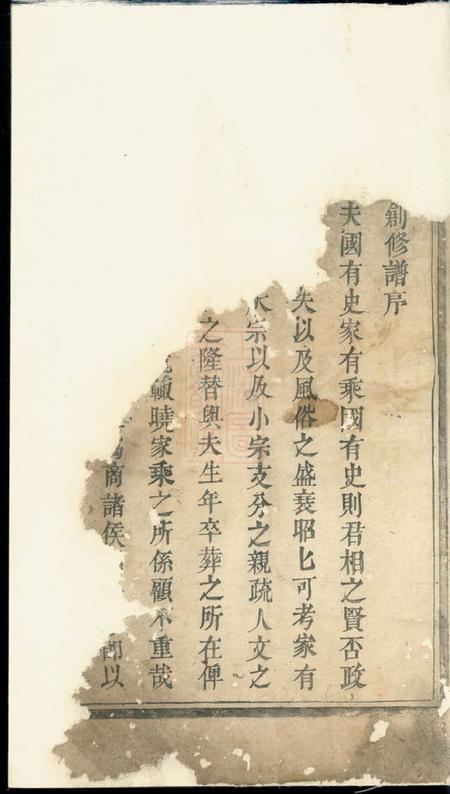 創修譜序
夫國有史家有乘國有史則君相之賢否政
失以及風俗之盛衰昭匕可考家有
宗以及小宗支分之親疏人文之
之隆替與夫生年卒葬之所在俾
輙曉家乘之所係顧不重哉
商諸侯 以